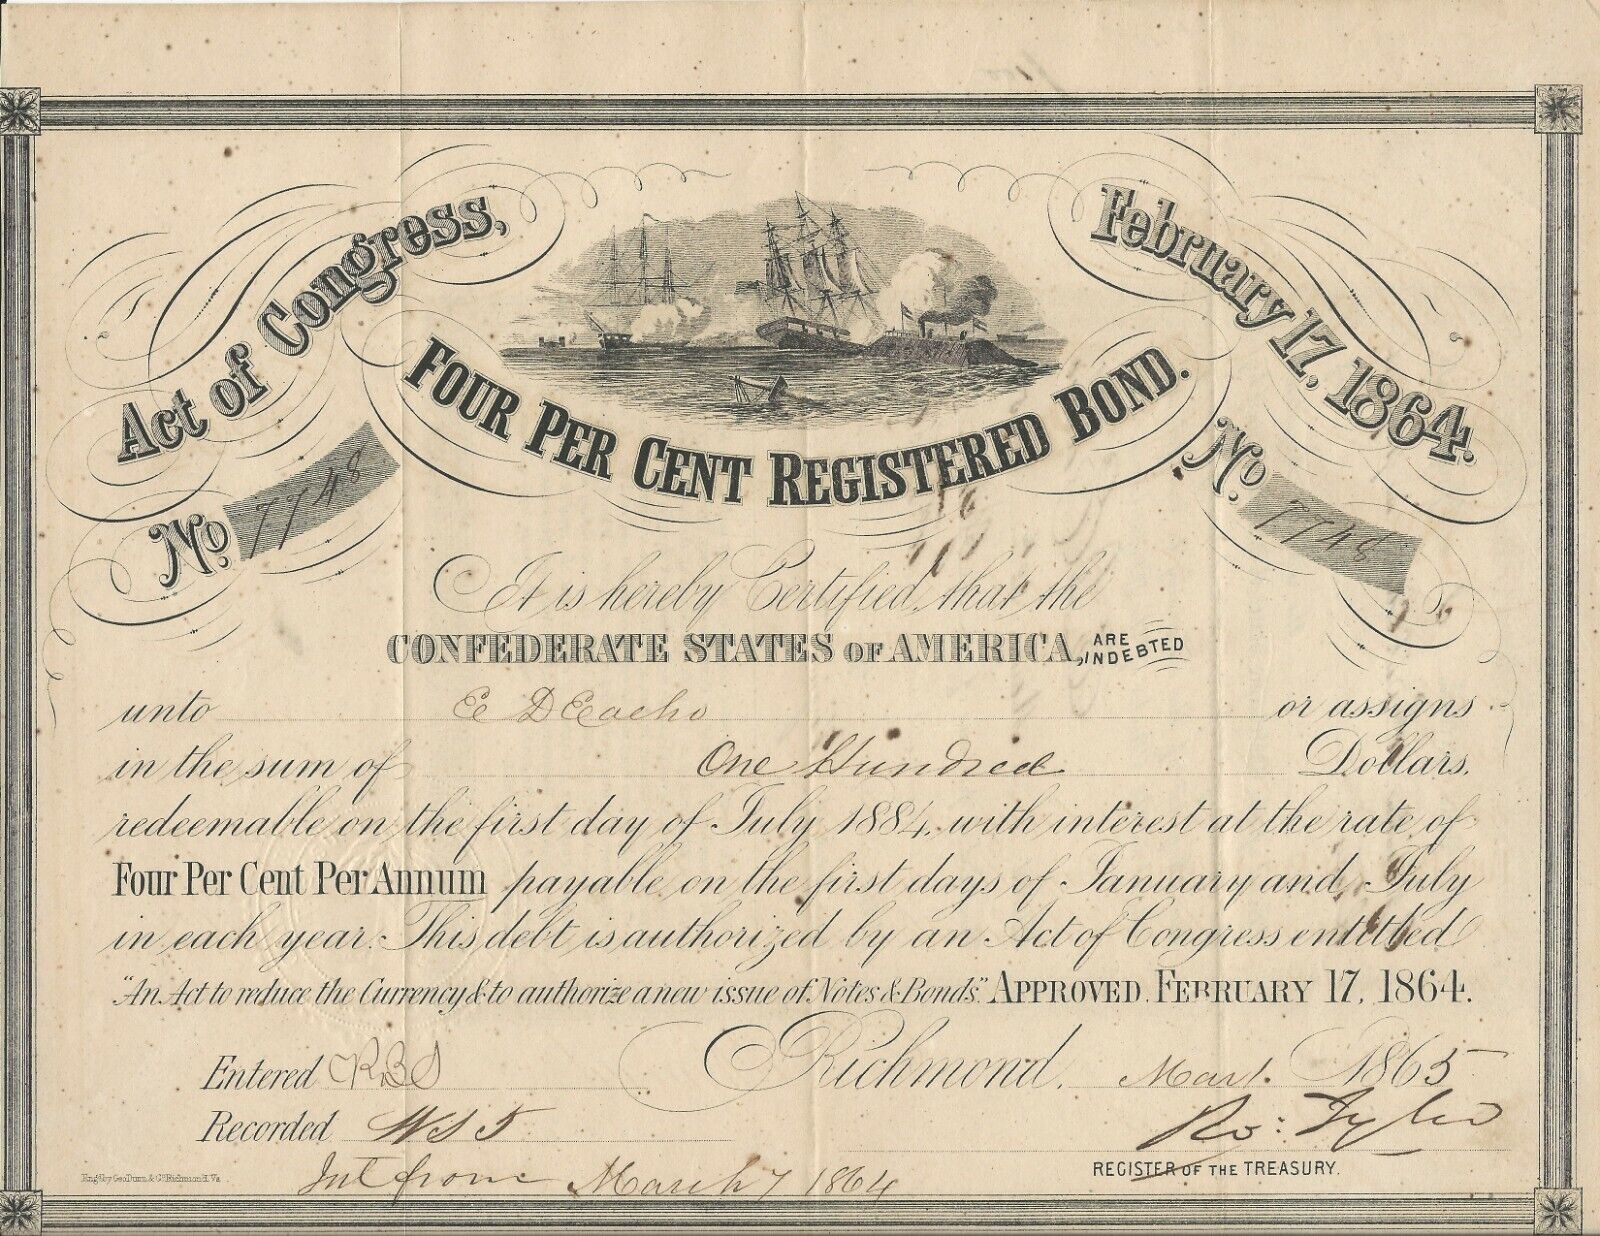 Act of Congress,
February 17, 1864.
Four Per Cent Registered Bond.
No. 7748
No. 7748
It is hereby Certified, that the
CONFEDERATE STATES OF AMERICA, ARE INDEBTED
unto E D Eacho or assigns
in the sum of One Hundred Dollars,
redeemable on the first day of July 1884, with interest at the rate of
Four Per Cent Per Annum payable on the first days of January and July
in each year. This debt is authorized by an Act of Congress entitled
"An Act to reduce the Currency & to authorize a new issue of Notes & Bonds". APPROVED, FEBRUARY 17, 1864.
Richmond, Mar 1. 1865
Entered RBS
Recorded
Ro: Tyler
REGISTER OF THE TREASURY.
Int from March 7 1864
Eng'd by Geo Dunn & Co Richmond, Va